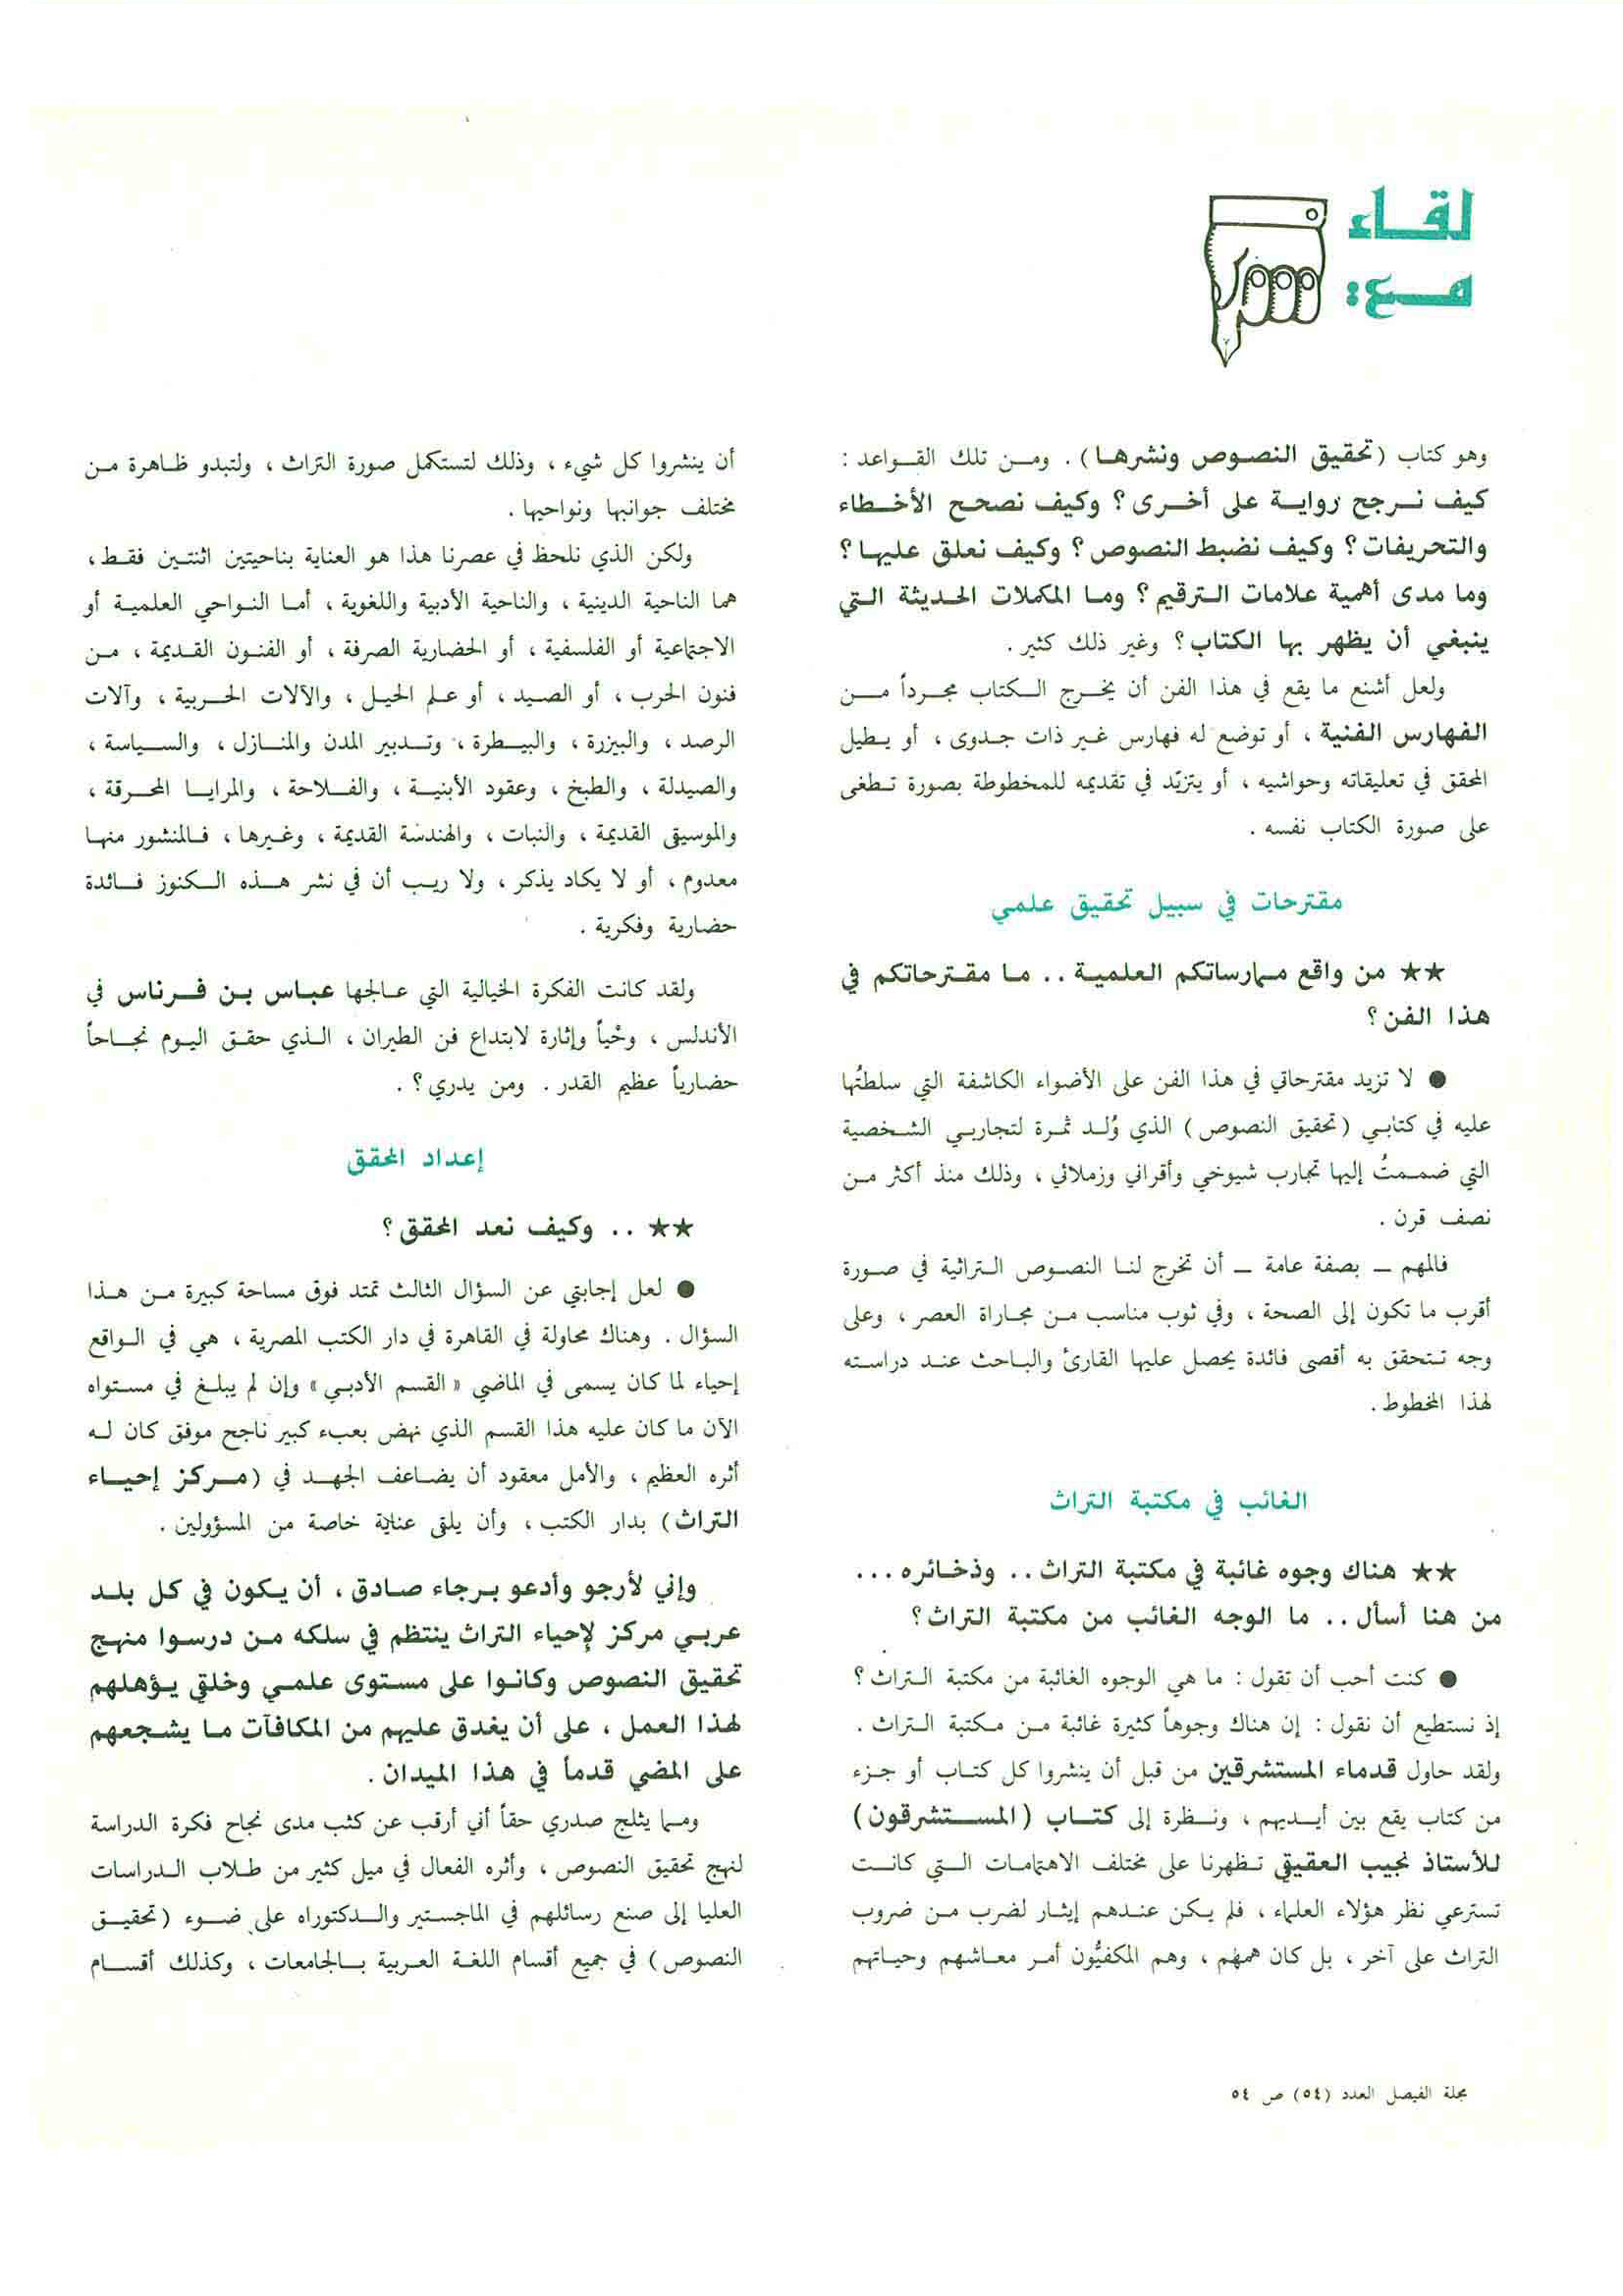 لقاء
مع:
وهو كتاب (تحقيق النصوص ونشرها) . ومن تلك القواعد :
كيف نرجح رواية على أخرى؟ وكيف نصحح الأخطاء
والتحريفات؟ وكيف نضبط النصوص؟ وكيف نعلق عليها؟
وما مدى أهمية علامات الترقيم؟ وما المكملات الحديثة التي
ينبغي أن يظهر بها الكتاب؟ وغير ذلك كثير .
ولعل أشنع ما يقع في هذا الفن أن يخرج الكتاب مجرداً من
الفهارس الفنية ، أو توضع له فهارس غير ذات جدوى ، أو يطيل
المحقق في تعليقاته وحواشيه ، أو يتزيّد في تقديمه للمخطوطة بصورة تطغى
على صورة الكتاب نفسه .
مقترحات في سبيل تحقيق علمي
★★ من واقع ممارساتكم العلمية .. ما مقترحاتكم في
هذا الفن؟
● لا تزيد مقترحاتي في هذا الفن على الأضواء الكاشفة التي سلطتُها
عليه في كتابي (تحقيق النصوص) الذي وُلد ثمرة لتجاربي الشخصية
التي ضممتُ إليها تجارب شيوخي وأقراني وزملائي ، وذلك منذ أكثر من
نصف قرن .
فالمهم ــ بصفة عامة ــ أن تخرج لنا النصوص التراثية في صورة
أقرب ما تكون إلى الصحة ، وفي ثوب مناسب من مجاراة العصر ، وعلى
وجه تتحقق به أقصى فائدة يحصل عليها القارئ والباحث عند دراسته
لهذا المخطوط .
الغائب في مكتبة التراث
★★ هناك وجوه غائبة في مكتبة التراث .. وذخائره ...
من هنا أسأل .. ما الوجه الغائب من مكتبة التراث؟
● كنت أحب أن تقول : ما هي الوجوه الغائبة من مكتبة التراث ؟
إذ نستطيع أن نقول : إن هناك وجوهاً كثيرة غائبة من مكتبة التراث .
ولقد حاول قدماء المستشرقين من قبل أن ينشروا كل كتاب أو جزء
من كتاب يقع بين أيديهم ، ونظرة إلى كتاب (المستشرقون)
للأستاذ نجيب العقيقي تظهرنا على مختلف الاهتمامات التي كانت
تسترعي نظر هؤلاء العلماء ، فلم يكن عندهم إيثار لضرب من ضروب
التراث على آخر ، بل كان همهم ، وهم المكفيُّون أمر معاشهم وحياتهم
أن ينشروا كل شيء ، وذلك لتستكمل صورة التراث ، ولتبدو ظاهرة من
مختلف جوانبها ونواحيها .
ولكن الذي نلحظ في عصرنا هذا هو العناية بناحيتين اثنتين فقط ،
هما الناحية الدينية ، والناحية الأدبية واللغوية ، أما النواحي العلمية أو
الاجتماعية أو الفلسفية ، أو الحضارية الصرفة ، أو الفنون القديمة ، من
فنون الحرب ، أو الصيد ، أو علم الحيل ، والآلات الحربية ، وآلات
الرصد ، والبيزرة ، والبيطرة ، وتدبير المدن والمنازل ، والسياسة ،
والصيدلة ، والطبخ ، وعقود الأبنية ، والفلاحة ، والمرايا المحرقة ،
والموسيقى القديمة ، والنبات ، والهندسة القديمة ، وغيرها ، فالمنشور منها
معدوم ، أو لا يكاد يذكر ، ولا ريب أن في نشر هذه الكنوز فائدة
حضارية وفكرية .
ولقد كانت الفكرة الخيالية التي عالجها عباس بن فرناس في
الأندلس ، وحْياً وإثارة لابتداع فن الطيران ، الذي حقق اليوم نجاحاً
حضارياً عظيم القدر . ومن يدري؟ .
إعداد المحقق
★★ .. وكيف نعد المحقق؟
● لعل إجابتي عن السؤال الثالث تمتد فوق مساحة كبيرة من هذا
السؤال . وهناك محاولة في القاهرة في دار الكتب المصرية ، هي في الواقع
إحياء لما كان يسمى في الماضي «القسم الأدبي» وإن لم يبلغ في مستواه
الآن ما كان عليه هذا القسم الذي نهض بعبء كبير ناجح موفق كان له
أثره العظيم ، والأمل معقود أن يضاعف الجهد في (مركز إحياء
التراث) بدار الكتب ، وأن يلقى عناية خاصة من المسؤولين .
وإني لأرجو وأدعو برجاء صادق ، أن يكون في كل بلد
عربي مركز لإحياء التراث ينتظم في سلكه من درسوا منهج
تحقيق النصوص وكانوا على مستوى علمي وخلقي يؤهلهم
لهذا العمل ، على أن يغدق عليهم من المكافآت ما يشجعهم
على المضي قدماً في هذا الميدان .
ومما يثلج صدري حقاً أني أرقب عن كثب مدى نجاح فكرة الدراسة
لنهج تحقيق النصوص ، وأثره الفعال في ميل كثير من طلاب الدراسات
العليا إلى صنع رسائلهم في الماجستير والدكتوراه على ضوء (تحقيق
النصوص) في جميع أقسام اللغة العربية بالجامعات ، وكذلك أقسام
مجلة الفيصل العدد (٥٤) ص ٥٤